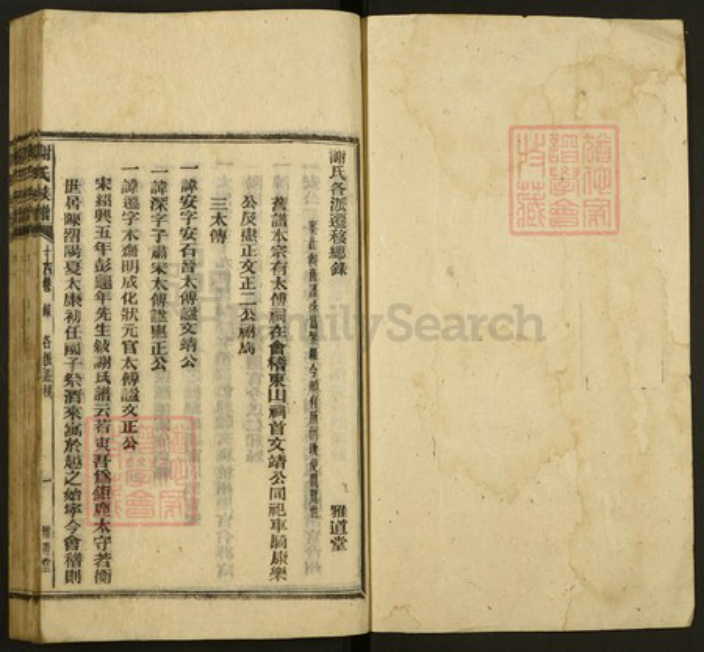 謝氏各派遷移總錄 雅道堂
舊譜本宗有太傅祠在會稽東山祠首文靖公同祀車騎康樂
公反惠正文正二公禰焉
三太傅
一諱安字安石晉太傅諡文靖公
一諱深字子肅宋太傅諡惠正公
一諱遷字木齋明成化狀元官太傅諡文正公
宋紹興五年彭龜年先生敘謝氏譜云若夷吾為鉅鹿太守若衡
世居陳郡陽夏太康初任國子祭酒來寓於越之始寧今會稽則
謝氏族譜 十四卷 各派遷移 一 雅道堂
FamilySearch